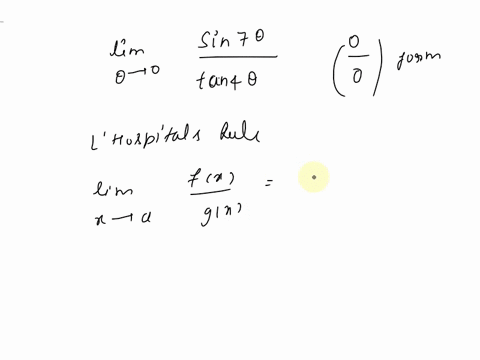 lim θ→0 sin 7θ / tan 4θ (0/0) form
L'Hospitals Rule
lim x→a f(x) / g(x) =